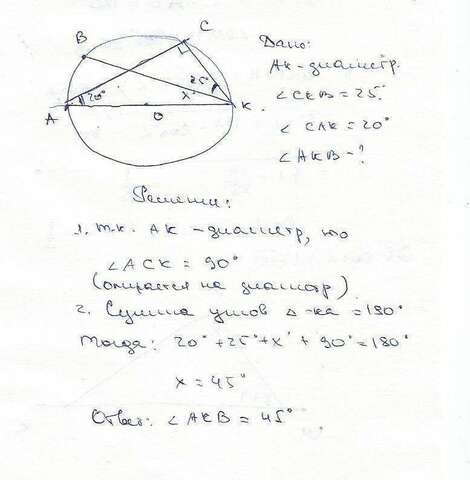 B
C
25°
20°
x°
A
O
K
Дано:
АК-диаметр.
∠СКВ = 25°
∠ САК = 20°
∠АКВ - ?
Решение:
1. т.к. АК - диаметр, то
∠АСК = 90°
(опирается на диаметр)
2. Сумма углов Δ-ка = 180°
тогда: 20° + 25° + x° + 90° = 180°
x = 45°
Ответ: ∠АКВ = 45°